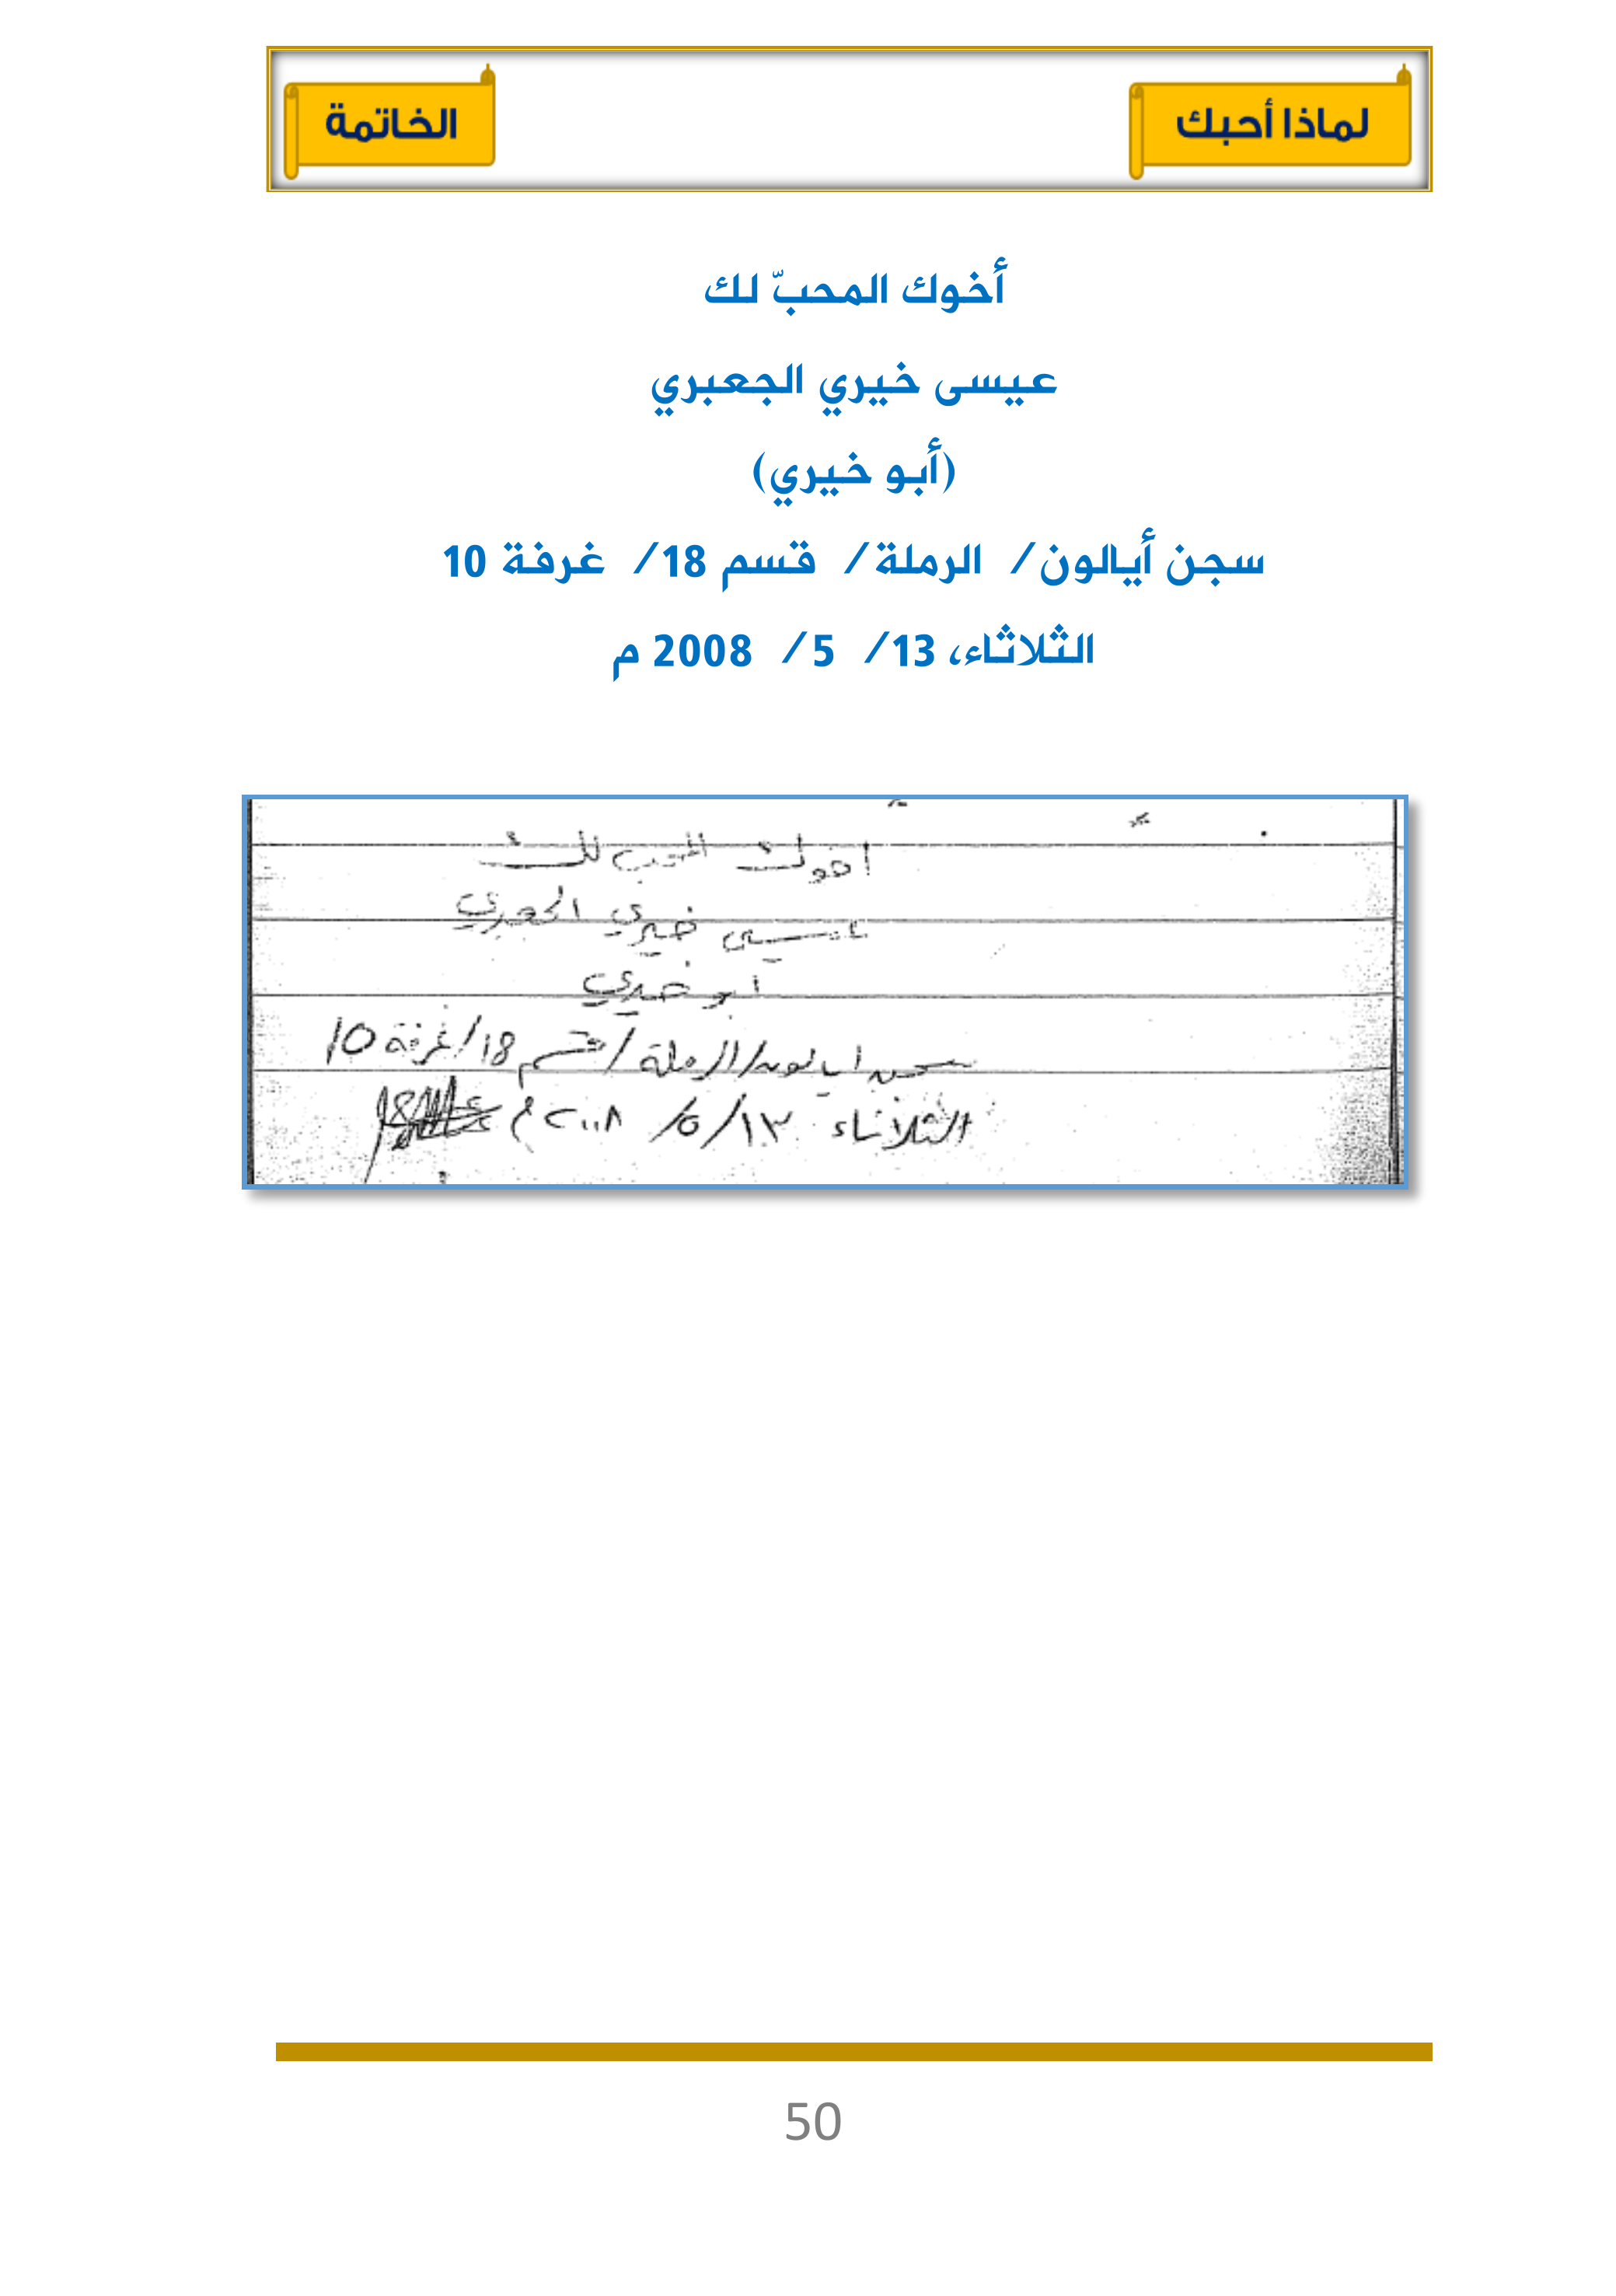 لماذا أحبك
الخاتمة
أخوك المحبّ لك
عيسى خيري الجعبري
(أبو خيري)
سجن أيالون/ الرملة/ قسم 18/ غرفة 10
الثلاثاء، 13/ 5/ 2008 م
اخوك المحب لك
عيسى خيري الجعبري
ابو خيري
سجن ايالون/الرملة/قسم 18/غرفة 10
الثلاثاء ١٣/٥/ ٢٠٠٨ م
50